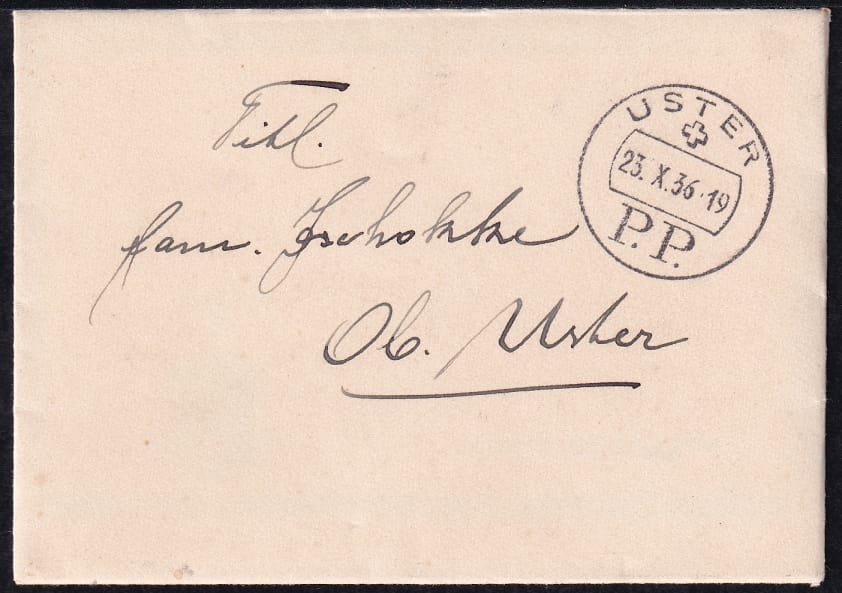 Titl.
Fam. Zschokke
Ob. Uster
USTER
23. X. 36 - 19
P.P.